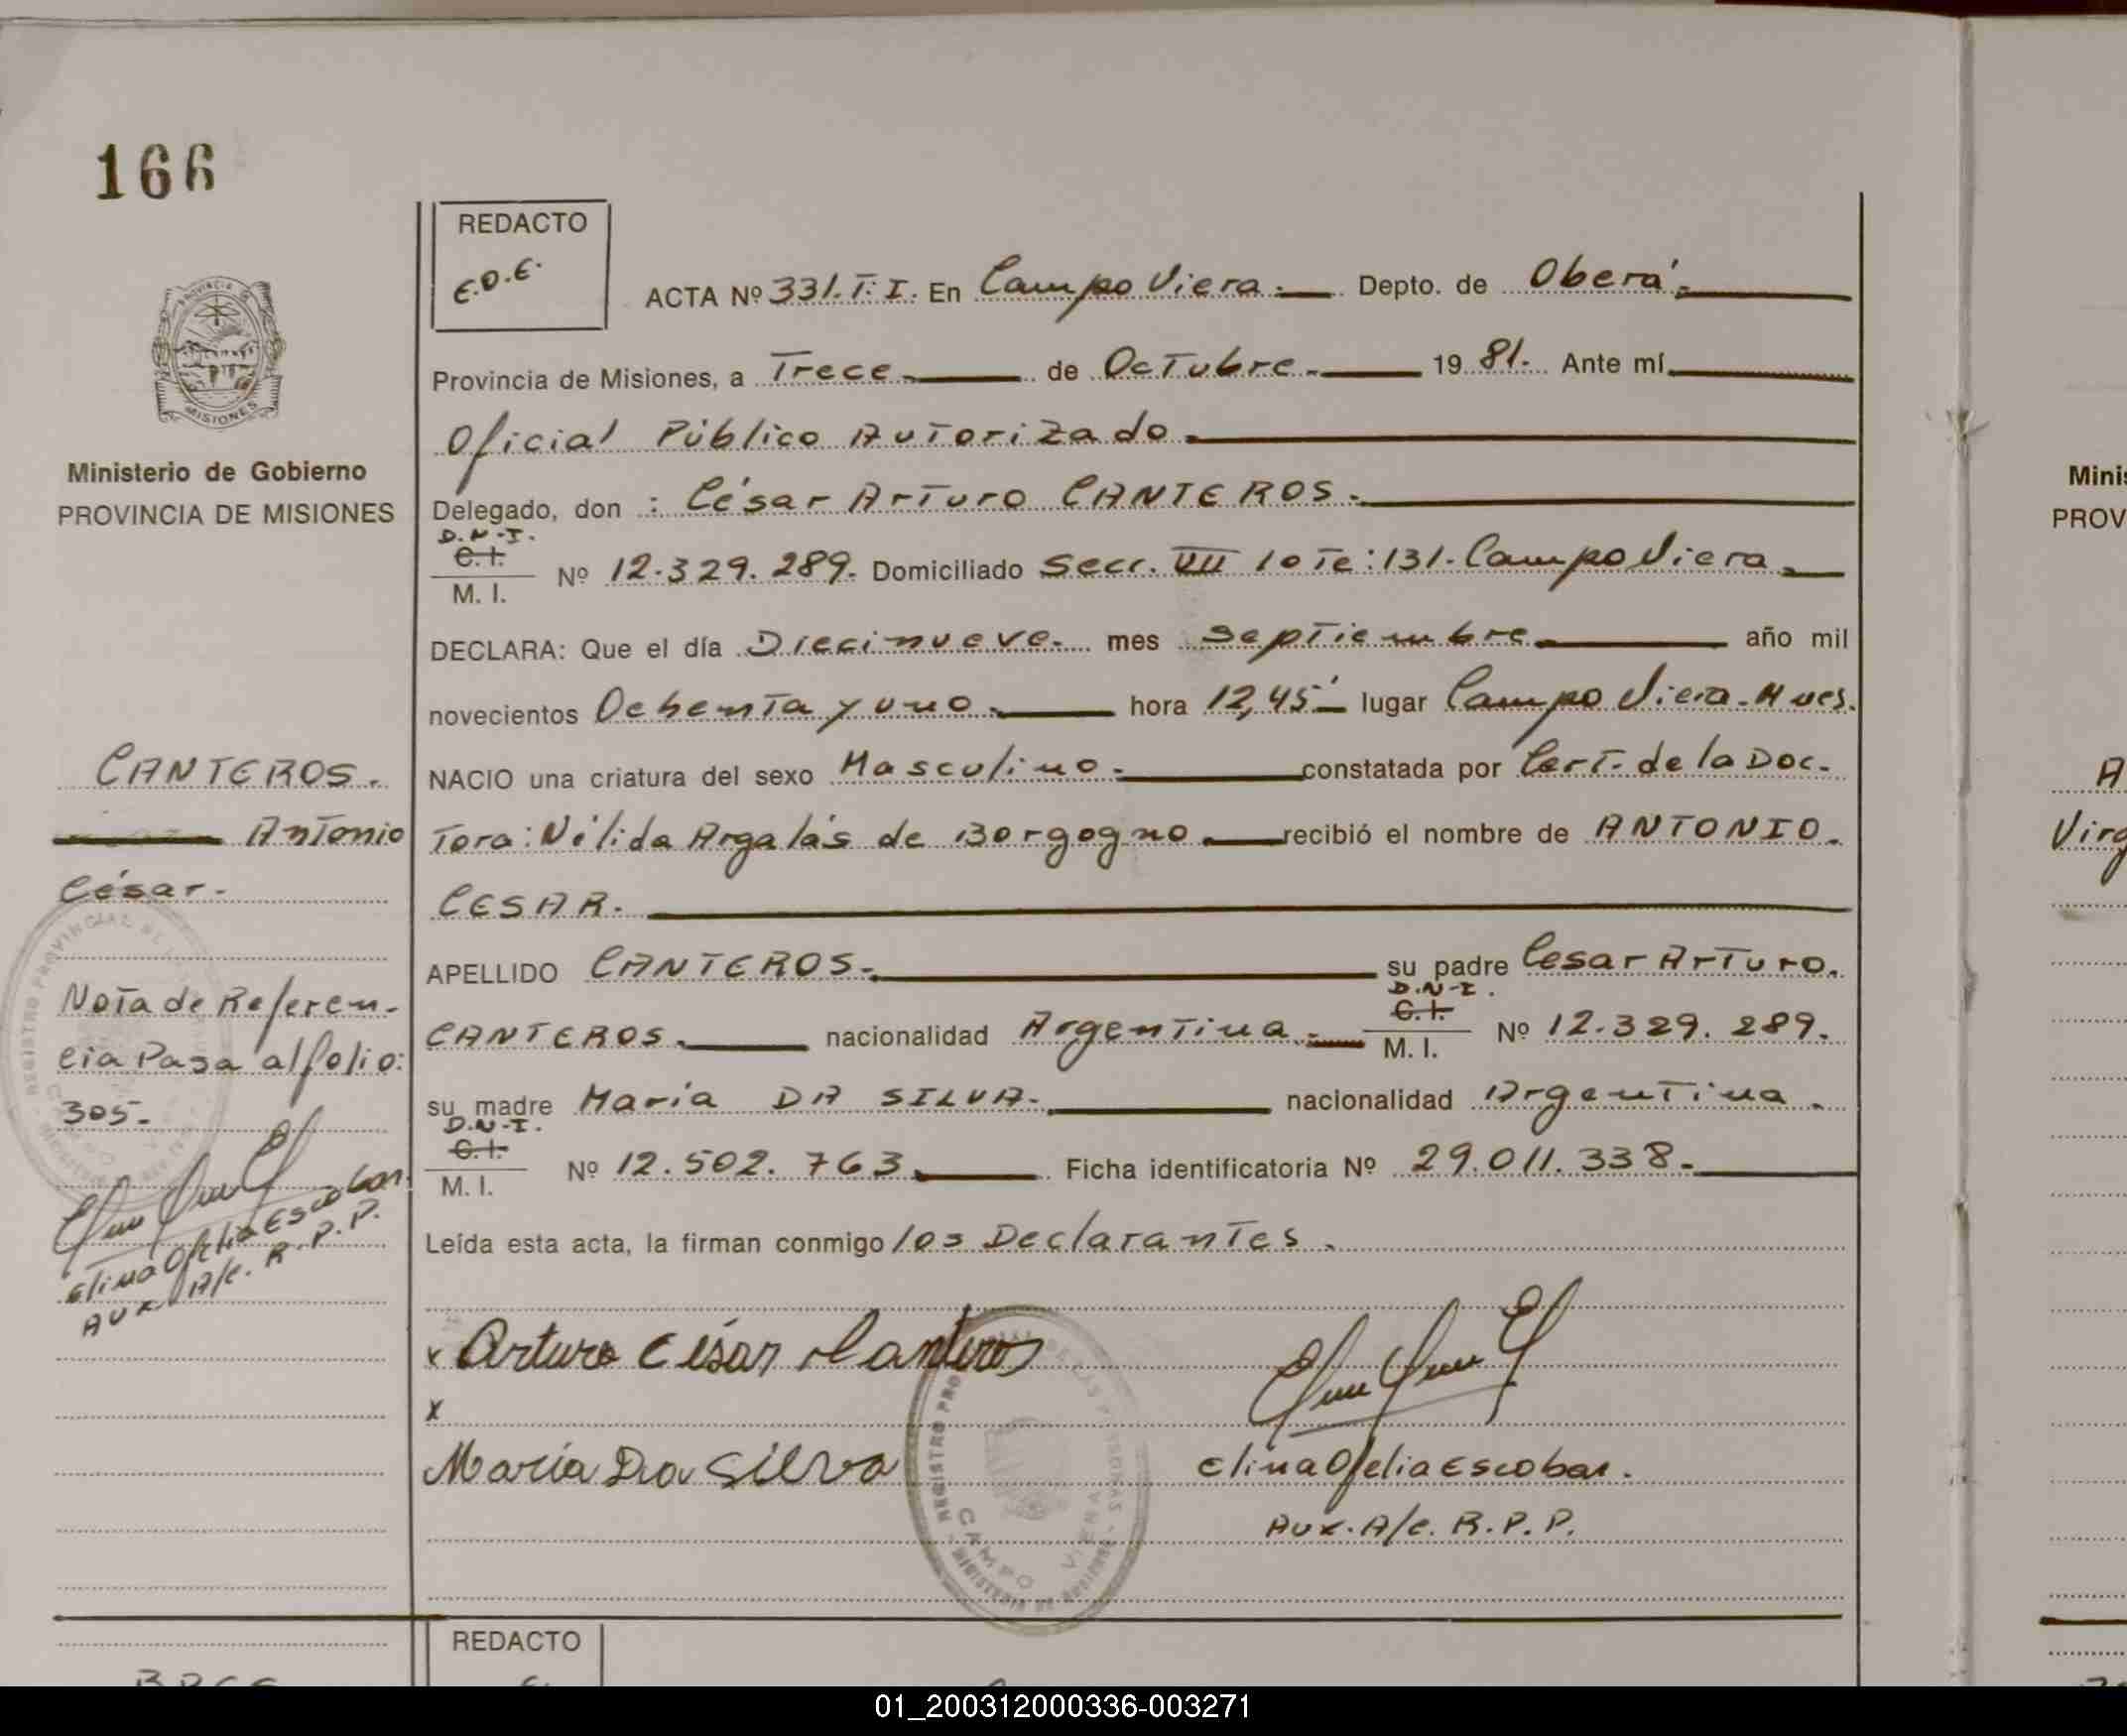 166
REDACTO
E.O.E.
ACTA Nº 331. T. I. En Campo Viera. Depto. de Oberá.
Provincia de Misiones, a Trece de Octubre. 19 81. Ante mí
Oficial Público Autorizado.
Delegado, don : César Arturo CANTEROS.
D.N.I.
C.I.
M. I.
Nº 12.329.289. Domiciliado Secc. VII lote: 131. Campo Viera.
DECLARA: Que el día Diecinueve. mes Septiembre. año mil
novecientos Ochenta y uno. hora 12,45' lugar Campo Viera.
NACIO una criatura del sexo Masculino. constatada por Cert. de la Doc.
tora: Nélida Argalás de Borgogno. recibió el nombre de ANTONIO.
CESAR.
APELLIDO CANTEROS. su padre Cesar Arturo.
D.N.I.
C.I.
M. I.
CANTEROS. nacionalidad Argentina. Nº 12.329.289.
su madre María DA SILVA. nacionalidad Argentina.
D.N.I.
C.I.
M. I.
Nº 12.502.763. Ficha identificatoria Nº 29.011.338.
Leída esta acta, la firman conmigo los Declarantes.
x Arturo César Canteros
x
María Da Silva
Elina Ofelia Escobar.
Aux. A/c. R.P.P.
PROVINCIA DE
MISIONES
Ministerio de Gobierno
PROVINCIA DE MISIONES
CANTEROS.
Antonio
César.
Nota de Referen-
cia Pasa al folio:
305.
Elina Ofelia Escobar
Aux. A/c. R.P.P.
REGISTRO PROVINCIAL DE LAS PERSONAS
CAMPO VIERA
MINISTERIO DE GOBIERNO
REDACTO
Minis
PROV
A
Virg
01_200312000336-003271